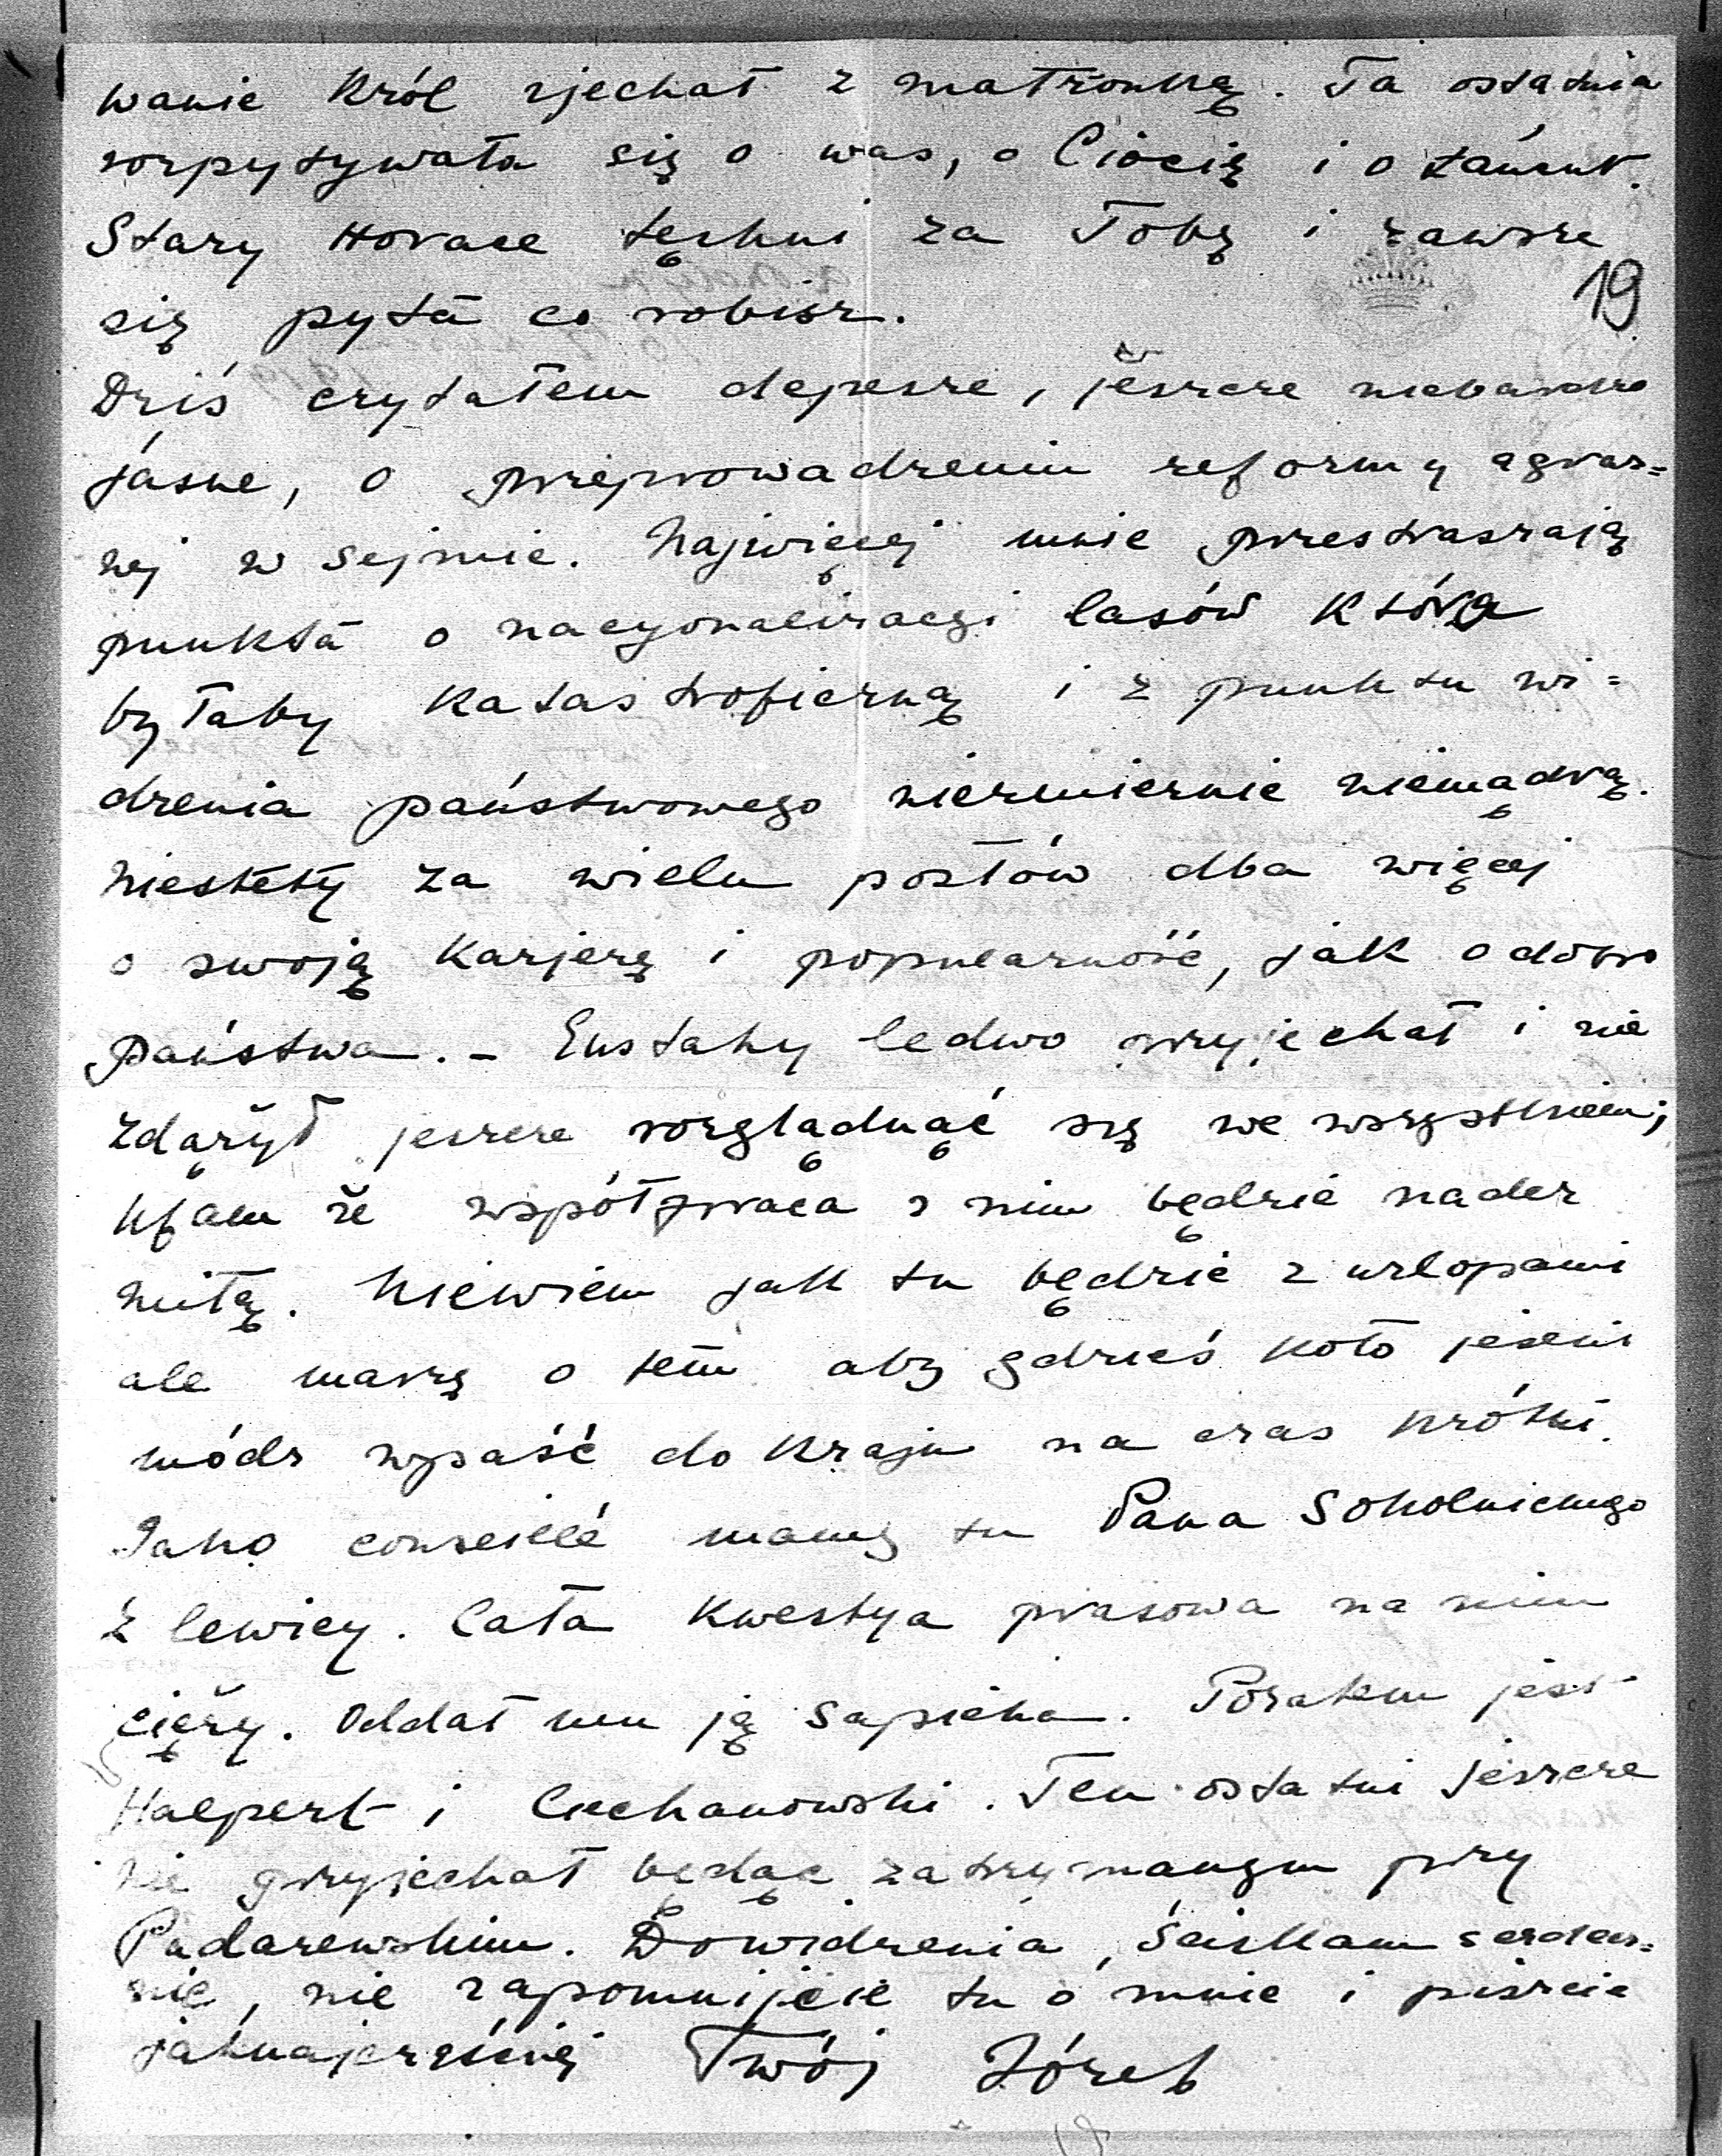 wanie Król zjechał z małżonką. Ta ostatnia
rozpytywała się o was, o Ciocię i o Łańcut.
Stary Horace tęskni za Tobą i zawsze
19
się pyta co robisz.
Dziś czytałem depesze, jeszcze niebardzo
jasne, o przeprowadzeniu reformy agrar=
nej w sejmie. Najwięcej mnie przestraszają
punkta o nacyonalizacyi lasów która
byłaby katastroficzną i z punktu wi=
dzenia państwowego niezmiernie niemądrą.
Niestety za wielu posłów dba więcej
o swoją karjerę i popularność, jak o dobro
Państwa. – Eustahy ledwo przyjechał i nie
zdążył jeszcze rozglądnąć się we wszystkiem;
Ufam że współpraca z nim będzie nader
miłą. Niewiem jak tu będzie z urlopami
ale marzę o tem aby gdzieś koło jesieni
módz wpaść do Kraju na czas krótki.
Jako conseillé mamy tu Pana Sokolnickiego
z lewicy. Cała kwestya prasowa na nim
cięży. Oddał mu ją Sapieha. Pozatem jest
Halpert i Ciechanowski. Ten ostatni jeszcze
nie przyjechał będąc zatrzymanym przy
Padarewskim. Dowidzenia, ściskam serdecz=
nie, nie zapomnijcie tu o mnie i piszcie
jaknajczęściej Twój Józef